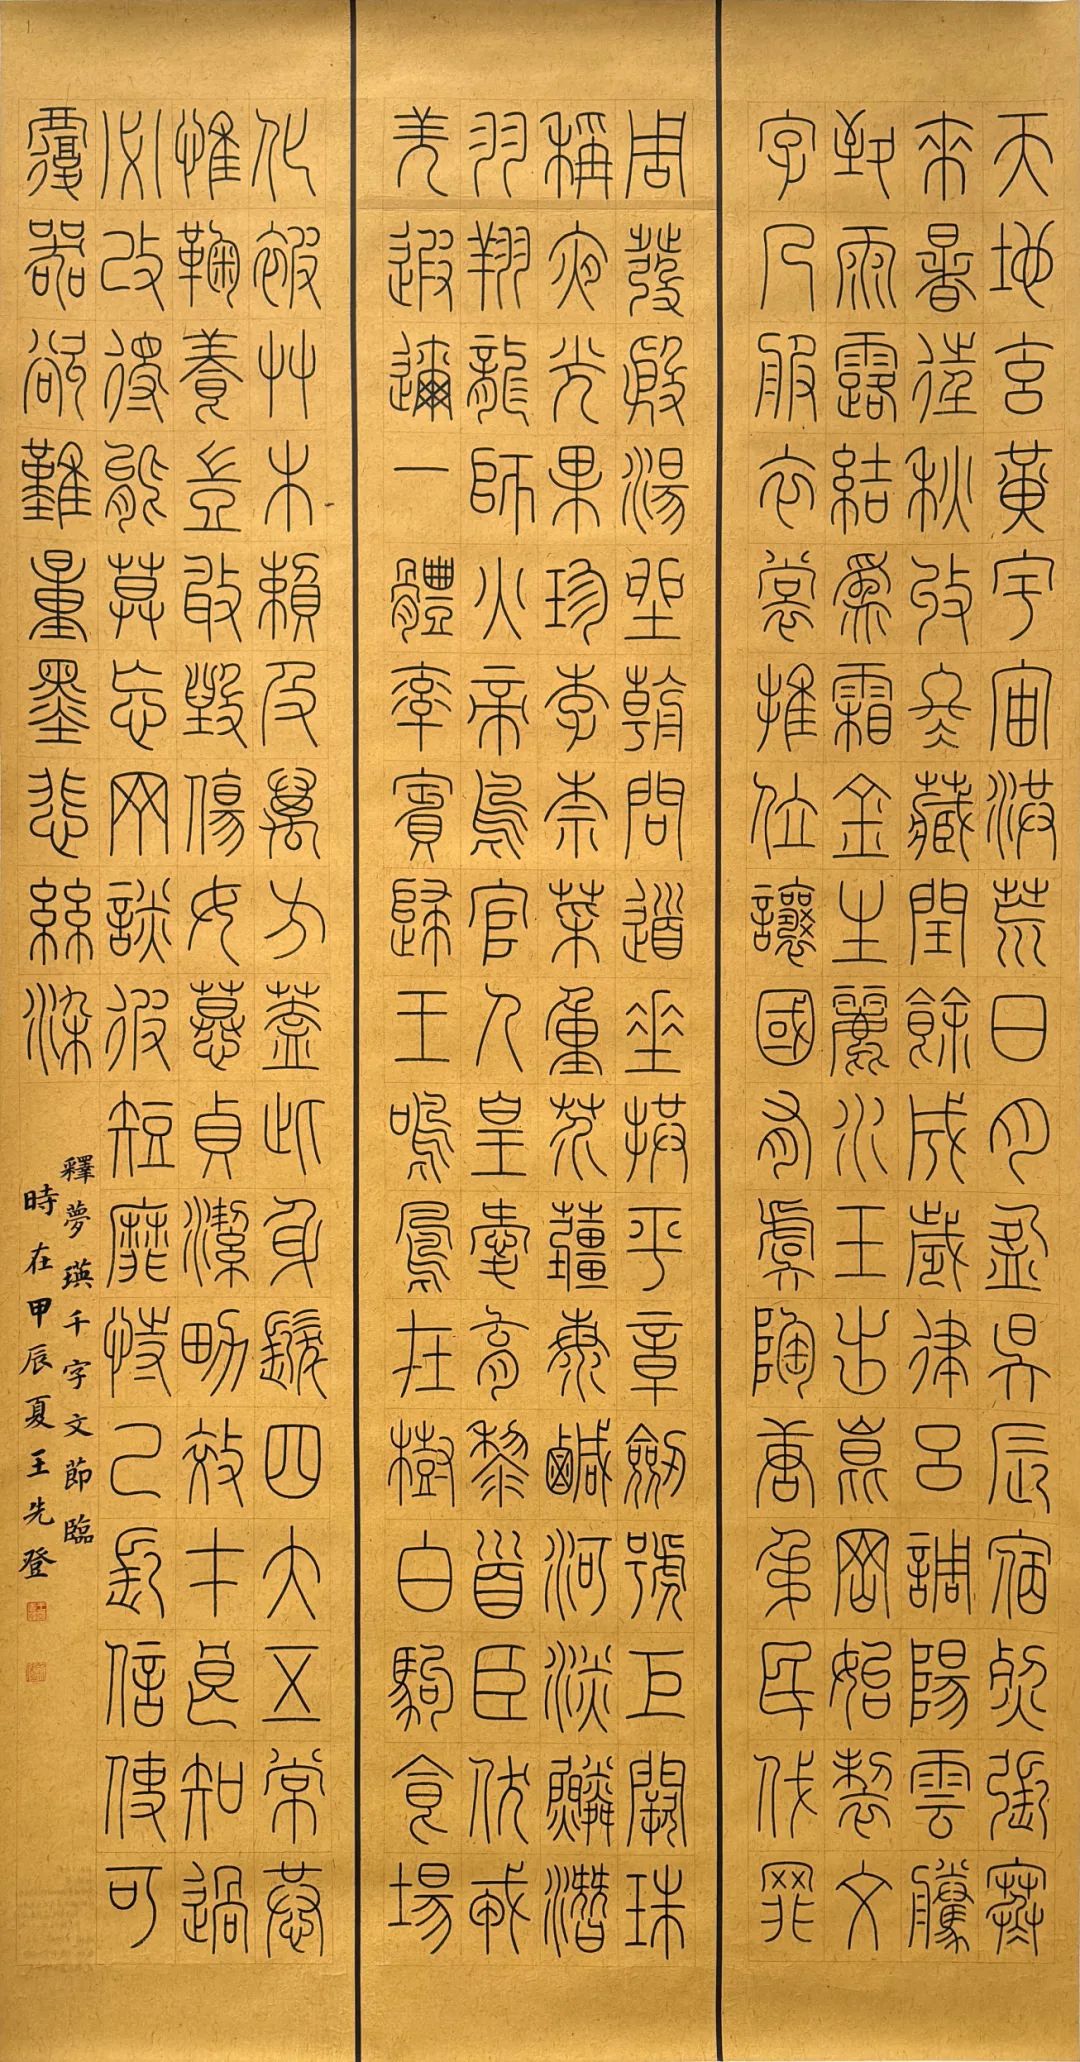 天地玄黃宇宙洪荒日月盈昃辰宿列張寒
來暑往秋收冬藏閏餘成歲律呂調陽雲騰
致雨露結為霜金生麗水玉出崑岡始製文
字乃服衣裳推位讓國有虞陶唐弔民伐罪
周發殷湯坐朝問道垂拱平章劍號巨闕珠
稱夜光果珍李柰菜重芥薑海鹹河淡鱗潛
羽翔龍師火帝鳥官人皇愛育黎首臣伏戎
羌遐邇一體率賓歸王鳴鳳在樹白駒食場
化被艸木賴及萬方蓋此身髮四大五常恭
惟鞠養豈敢毀傷女慕貞潔男效才良知過
必改得能莫忘罔談彼短靡恃己長信使可
覆器欲難量墨悲絲染
釋夢瑛千字文節臨
時在甲辰夏王先登